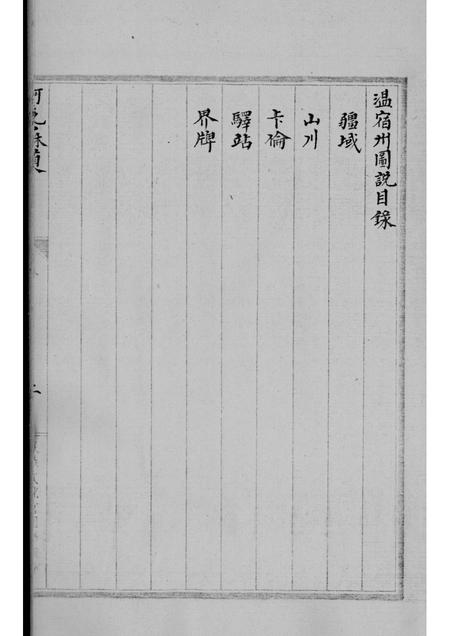 温宿州圖說目錄
疆域
山川
卡倫
驛站
界牌
二